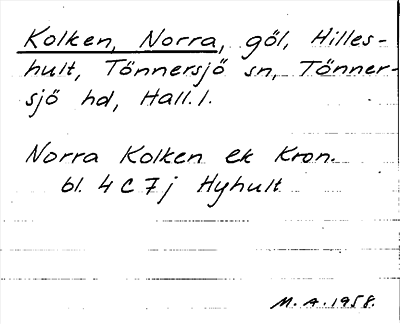 Kolken, Norra, göl, Hilles-
hult, Tönnersjö sn, Tönner-
sjö hd, Hall. l.
Norra Kolken ek Kron.
bl. 4 C 7 j Hyhult
M. A. 1958.